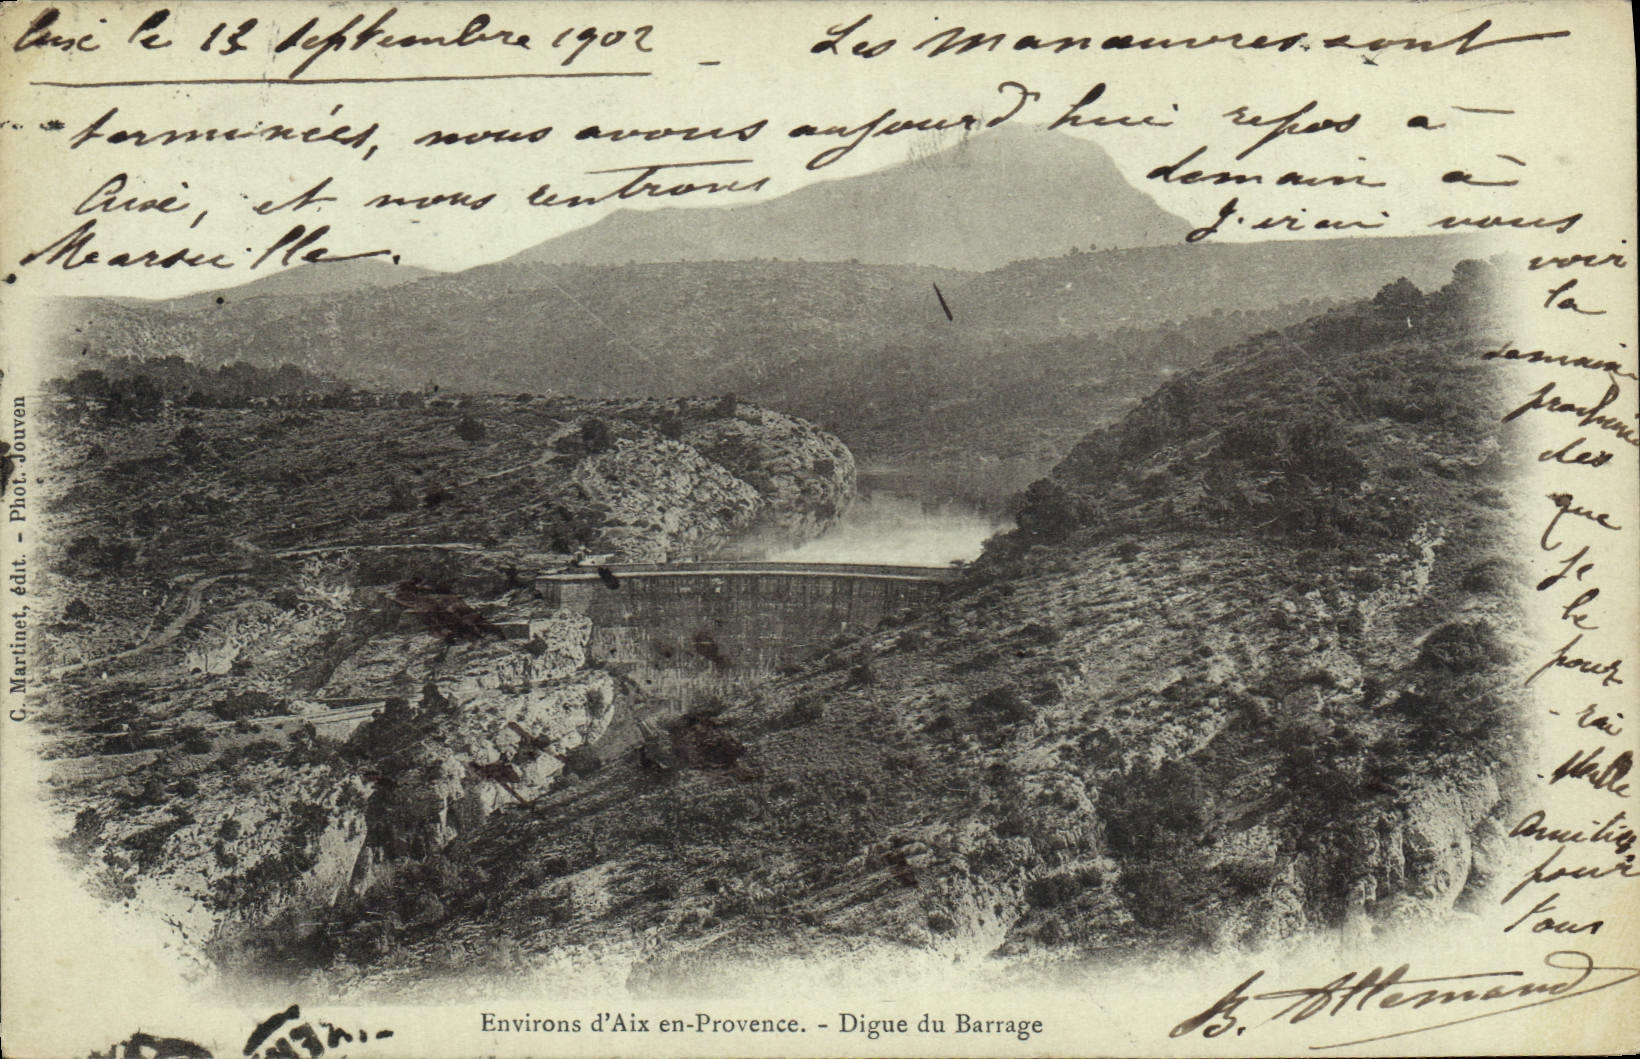 le 13 Septembre 1902 - Les manœuvres sont
terminées, nous avons aujourd'hui repos à
et nous rentrons demain à
Marseille. J'irai vous
voir
la
semaine
prochaine
dès
que
je
le
pour
-rai
Mille
amitiés
pour
tous
B. Allemand
C. Martinet, édit. - Phot. Jouven
Environs d'Aix en-Provence. - Digue du Barrage